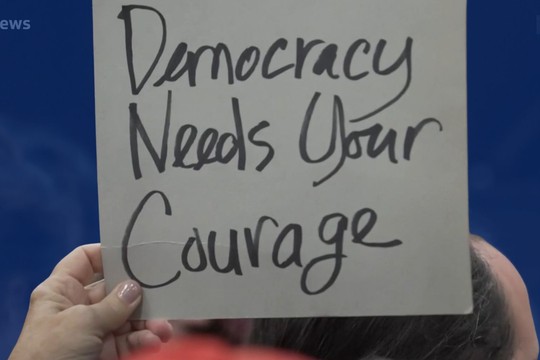 ews
Democracy
Needs Your
Courage